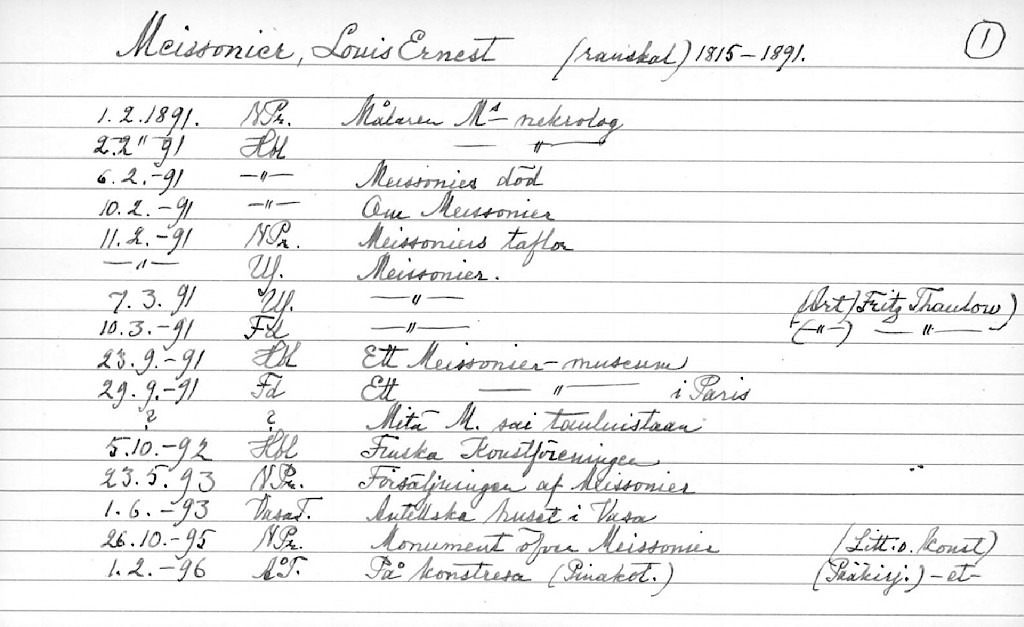 Meissonier, Louis Ernest (ranskal) 1815-1891. 1
1.2.1891. NPr. Målaren M:s nekrolog
2.2 " 91 Hbl — " —
6.2.-91 — " — Meissoniers död
10.2.-91 — " — Om Meissonier
11.2.-91 NPr. Meissoniers taflor
— " — Uf. Meissonier.
7.3.91 Uf. — " — (Art) Fritz Thaulow)
10.3.-91 Fd — " — (— " —) — " —
23.9.-91 Hbl Ett Meissonier-museum
29.9.-91 Fd Ett — " — i Paris
? ? Mitä M. sai tauluistaan
5.10.-92 Hbl Finska Konstföreningen
23.5.93 NPr. Försäljningen af Meissonier
1.6.-93 VasaT. Antellska huset i Vasa
26.10.-95 NPr. Monument öfver Meissonier (Litt. o. konst)
1.2.-96 ÅT. På konstresa (Pinakot.) (Pääkirj.) -et-